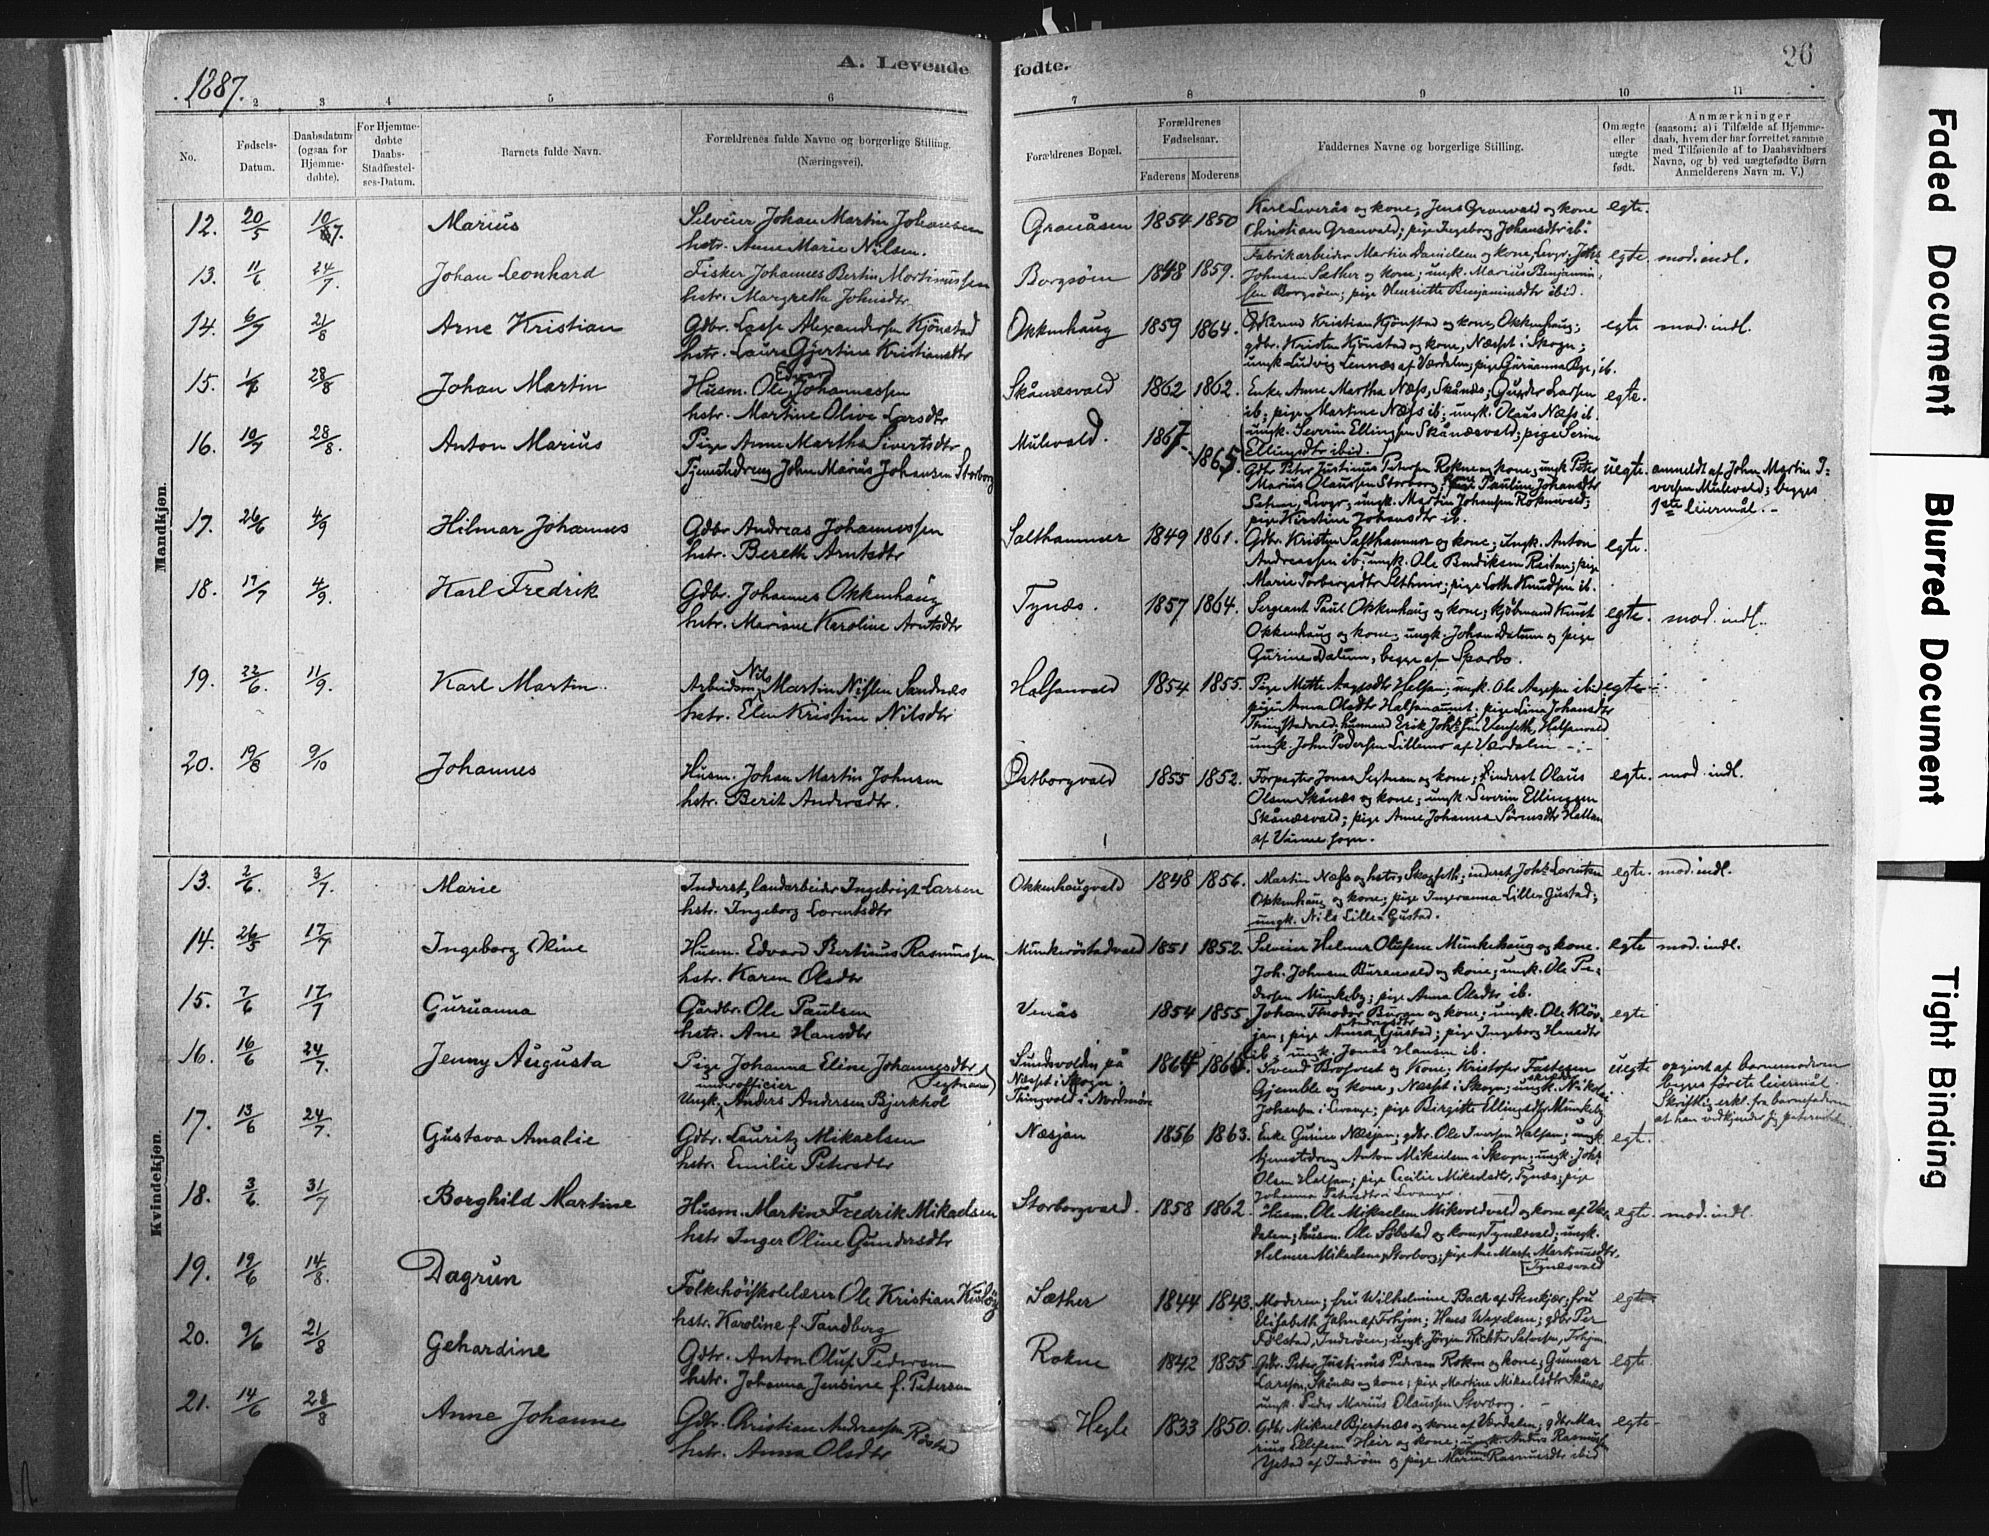 1887.
A. Levende fødte.
26
2 3 4 5 6 7 8 9 10 11
No.
Fødsels-Datum.
Daabsdatum (ogsaa for Hjemmedøbte).
For Hjemmedøbte Daabs-Stadfæstelses-Datum.
Barnets fulde Navn.
Forældrenes fulde Navne og borgerlige Stilling.
(Næringsvei).
Forældrenes Bopæl.
Forældrenes Fødselsaar.
Faderens Moderens
Faddernes Navne og borgerlige Stilling.
Om ægte eller uægte født.
Anmærkninger
(saasom: a) i Tilfælde af Hjemmedaab, hvem der har forrettet samme med Tilføiende af to Daabsvidners Navne, og b) ved uægtefødte Børn Anmelderens Navn m. V.)
Mandkjøn.
12. 20/5 10/7. Marius
Selveier Johan Martin Johansen
hstr. Anne Marie Nilsen.
Granåsen 1854 1850
Karl Leverås og kone; Jens Granvald og kone
Christian Granvald; pige Ingeborg Johansdtr ib.
egte.
13. 11/6 24/7. Johan Leonhard
Fisker Johannes Bertin Martinussen
hstr. Margrethe Johnsdtr.
Borgsøen 1848 1859.
Fabrikarbeider Martin Danielsen og kone, Levgr; Johs
Johnsen Sæther og kone; ungk. Marius Benjamin-
sen Borgsøen; pige Henriette Benjaminsdtr ibid.
egte. mod. indl.
14. 6/7 21/8 Arne Kristian
Gdbr. Lasse Alexandersen Kjönstad
hstr. Laura Gjertine Kristiansdtr
Okkenhaug 1859 1864.
Kristian Kjønstad og kone, Okkenhaug;
gdbr. Kristen Kjönstad og kone, Næsset i Skogn;
ungk Ludvig Lennæs af Værdalen; pige Gurianna Rye, ib.
egte mod. indl.
15. 28/8 Johan Martin
Husm. Ole Edvard Johannessen
hstr. Martine Olive Larsdtr
Skånesvald 1862 1862.
Enke Anne Martha Næss, Skånæs; Gunder Larsen
ib; pige Martine Næss ib; ungk. Olaus Næss ib.
ungk. Severin Ellingsen Skånæsvald; pige Serine
Ellingsdtr ibid.
egte.
16. 10/7 28/8. Anton Marius
Pige Anne Martha Sivertsdtr
Tjenestedreng John Marius Johansen Storborg
Mulevald. 1867 1865.
Gdbr Peter Justinus Petersen Rokne og kone; ungk Peter
Marius Olaussen Storborg; Pauline Johansdtr
Levgr; ungk. Martin Johansen Roknevald;
pige Kirstine Johansdtr ib.
uegte. anmeldt af John Martin I-
versen Mulevald; begges
1ste leiermål.
17. 26/6 4/9 Hilmar Johannes
Gdbr Andreas Johannessen
hstr. Bereth Arntsdtr
Salthammer 1849 1861.
Gdbr. Kristen Salthammer og kone; ungk. Anton
Andreassen ib; ungk. Ole Bendiksen Reitan; pige
Marie Torbergsdtr; pige Lotte Knudsen ib.
egte.
18. 17/7 4/9. Karl Fredrik
Gdbr. Johannes Okkenhaug
hstr. Mariane Karoline Arntsdtr
Tynæs. 1857 1864.
Sergeant Paul Okkenhaug og kone; kjöbmand Knut
Okkenhaug og kone; ungk. Johan Dalum og pige
Gurine Dalum, begge af Sparbo.
egte. mod. indl.
19. 22/6. 11/9. Karl Martin.
Arbeidsm. Nils Martin Nilsen Sandnæs
hstr. Elen Kristine Nilsdtr
Halsanvald 1854 1855.
Pige Mette Aagesdtr Halsan; ungk. Ole Aagesen ibid
pige Anna Olsdtr; pige Lina Johansdtr
husmand Erik Johnsen Venseth, Halsanvald
ungk. John Pedersen Lillemo af Værdalen
egte
20. 19/8 9/10 Johannes
Husm. Johan Martin Johnsen
hstr. Berit Andersdtr.
Østborgvald 1855 1852.
Forpagter Jonas Segtnan og kone; Inderst Olaus
Olsen Skånæs og kone; ungk. Severin Ellingsen
Skånæsvald; pige Anne Johanna Sörensdtr Hallan
af Vinne sogn.
egte. mod. indl.
Kvindekjøn.
13. 2/6. 3/7. Marie
Inderst, landarbeider Ingebrigt Larsen
hstr. Ingeborg Lorentsdtr
Okkenhaugvald 1848 1856.
Martin Næss og hstr, Skogseth; inderst Johs Lorentsen
Okkenhaug og kone; pige Ingeranna Lille Gustad;
ungk. Nils Lille-Gustad.
egte. mod. indl.
14. 26/5 17/7 Ingeborg Oline
Husm. Edvard Bertinus Rasmussen
hstr. Karen Olsdtr
Munkeröstadvald 1851 1852.
Selveier Helmer Olufsen Munkehaug og kone.
Joh. Johnsen Buranvald og kone; ungk. Ole Pe-
dersen Munkeby; pige Anna Olsdtr ib.
egte mod. indl.
15. 7/6 17/7 Guruanna
Gårdbr. Ole Paulsen
hstr. Ane Hansdtr
Venås 1854 1855.
Johan Theodor Buran og kone; ungk. Ole Klöv-
jan; pige Anna Andersdtr Gustad; pige Ingeborg Hansdtr
ib.; ungk. Jonas Hansen ib.
egte
16. 16/6 24/7. Jenny Augusta
Pige Johanna Eline Johannesdtr (Segtnan)
underofficier
Ungk. Anders Andersen Bjerkhol
Sundsvolden på
Næsset i Skogn
Thingvold i Nordmøre
1864
Svend Brofoset og Kone; Kristofer Fastesen
Gjemble og kone, Næsset i Skogn; ungk. Nikolai
Johansen i Levanger; pige Birgitte Ellingsdtr Munkeby
uegte opgivet af barnemoderen
begges förste leiermål.
Skriftlig erkl. fra barnefaderen
at han vedkjender sig paterniteten.
17. 13/6 24/7. Gustava Amalie
Gdbr. Lauritz Mikaelsen
hstr. Emilie Petersdtr
Næsjan 1856 1863.
Enke Gurine Næsjan; gdbr. Ole Iversen Halsan; ungk.
tjenestedreng Anton Mikaelsen i Skogn; ungk. Johs
Olsen Halsan; pige Cecilie Mikaelsdtr, Tynæs; pige
Johanna Petersdtr i Levanger.
egte.
18. 3/6. 31/7 Borghild Martine
Husm. Martin Fredrik Mikaelsen
hstr Inger Oline Gundersdtr
Storborgvald. 1858 1862.
Husm. Ole Mikaelsen Mikvoldvald og kone af Vær-
dalen; husm. Ole Söbstad og kone, Tynæsvald; ungk.
Helmer Mikaelsen, Storborg; pige Ane Marta Martinusdtr,
Tynæsvald
egte. mod. indl.
19. 19/6 14/8. Dagrun
Folkehöiskolelærer Ole Kristian
hstr. Karoline f. Tandberg
Sæther 1844 1843.
Moderen; fru Wilhelmine Bach af Stenkjær, fru
Elisabeth Jahn af Trhjem; Hans Wexelsen; gdbr Per
Fölstad, Inderöen; ungk. Jörgen Richter Salvesen, Trhjem.
egte
20. 9/6 21/8 Gehardine
Gdbr. Anton Oluf Pedersen
hstr. Johanna Jensine f. Petersen
Rokne 1842 1855
Gdbr. Peter Justinus Pedersen Rokne og kone; Gunnar
Larssen, Skånæs og kone; pige Martine Mikaelsdtr Skånæs
ungk. Peder Marius Olaussen Storborg.
egte
21. 14/6 28/8 Anne Johanne
Gdbr. Christian Andreassen Röstad
hstr. Anna Olsdtr
Hegle 1833 1850.
Gdbr Mikael Bjertnæs og kone af Værdalen; gdbr Ma-
rius Ellefsen Heir og kone; ungk. Anders Rasmussen
Ystad af Inderöen og pige Maren Rasmusdtr ibid
egte
Faded Document
Blurred Document
Tight Binding